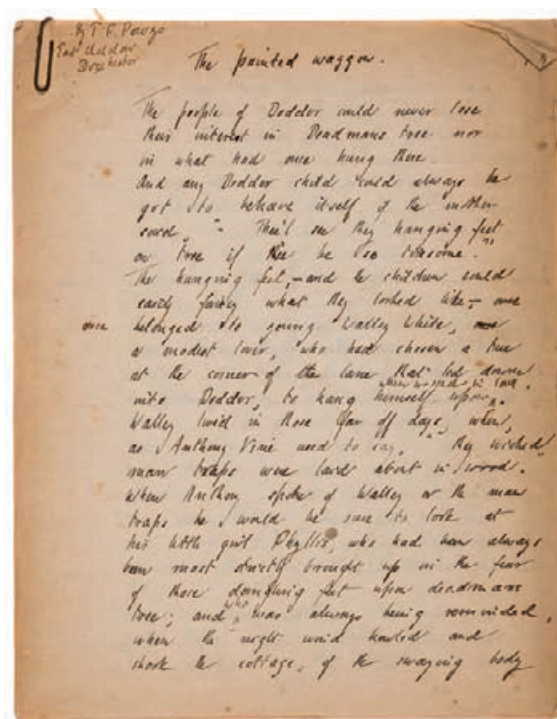 By T. F. Powys
East Chaldon
Dorchester
The painted waggon.
The people of Dodder could never lose
their interest in Deadmans tree nor
in what had once hung there
And any Dodder child could always be
got to behave itself if the mother
said, "Thee'll see they hanging feet
on tree if thee be so tiresome."
The hanging feet, – and the children could
easily fancy what they looked like, –
once belonged to young Walley White,
a modest lover, who had chosen a tree
at the corner of the lane that led down
into Dodder, to hang himself upon,
when crossed in love.
Walley lived in those far off days, when,
as Anthony Vine used to say, "they wicked
man traps were laid about in wood."
When Anthony spoke of Walley or the man
traps he would be sure to look at
his little girl Phyllis, who had been always
been most strictly brought up in the fear
of those dangling feet upon deadmans
tree; and who was always being reminded,
when the night wind howled and
shook the cottage, of the swaying body